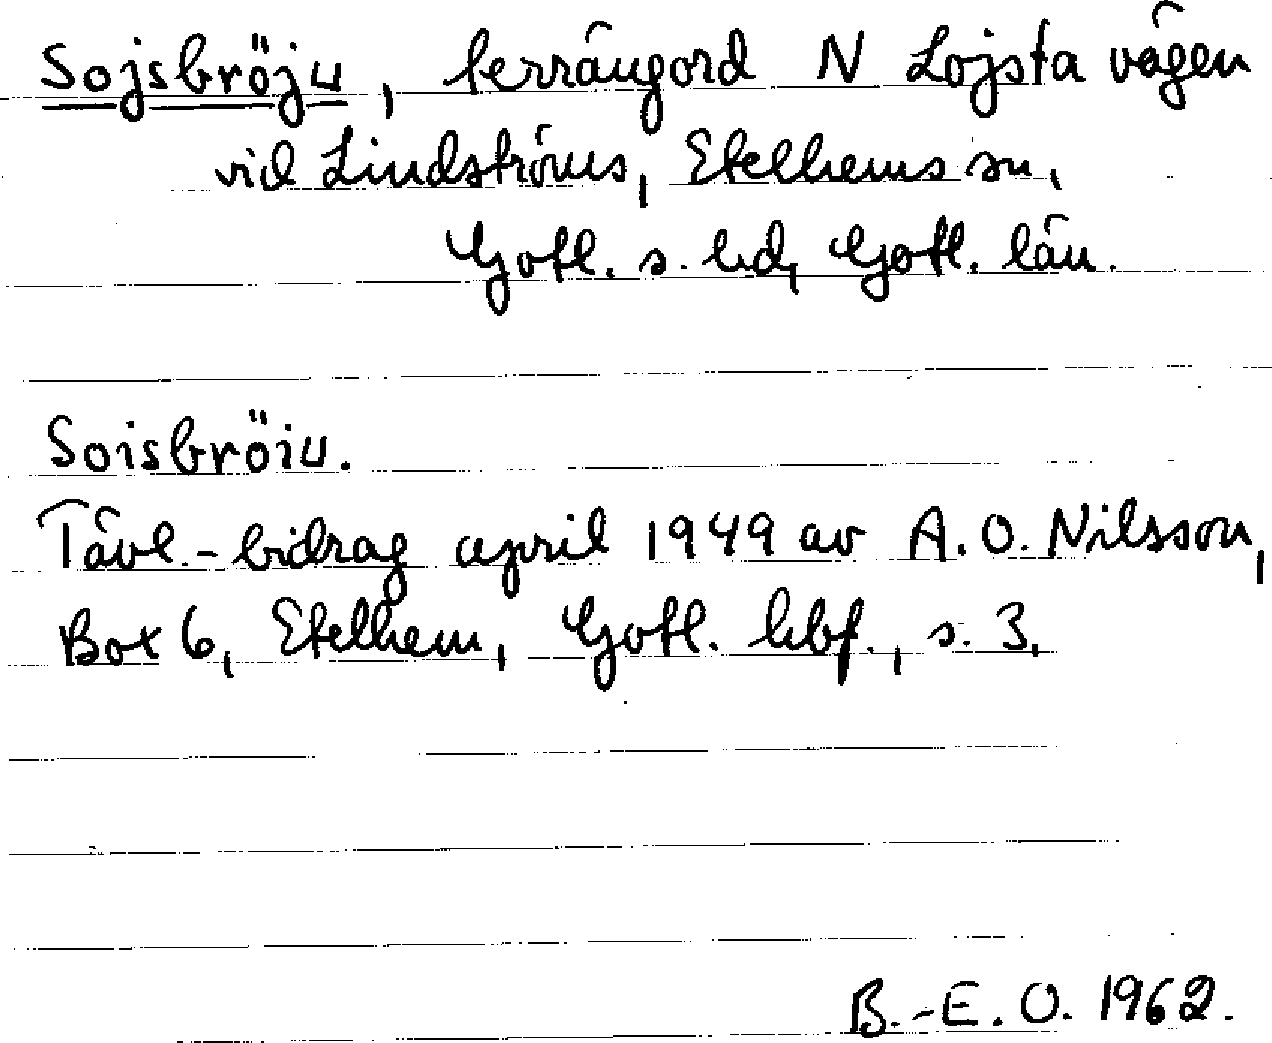 Sojsbröju, terrängord N Lojsta vägen
vid Lindströms, Etelhems sn,
Gotl. s. hd, Gotl. län.
Soisbröiu.
Tävl.-bidrag april 1949 av A. O. Nilsson,
Box 6, Etelhem, Gotl. hbf., s. 3.
B.-E. O. 1962.